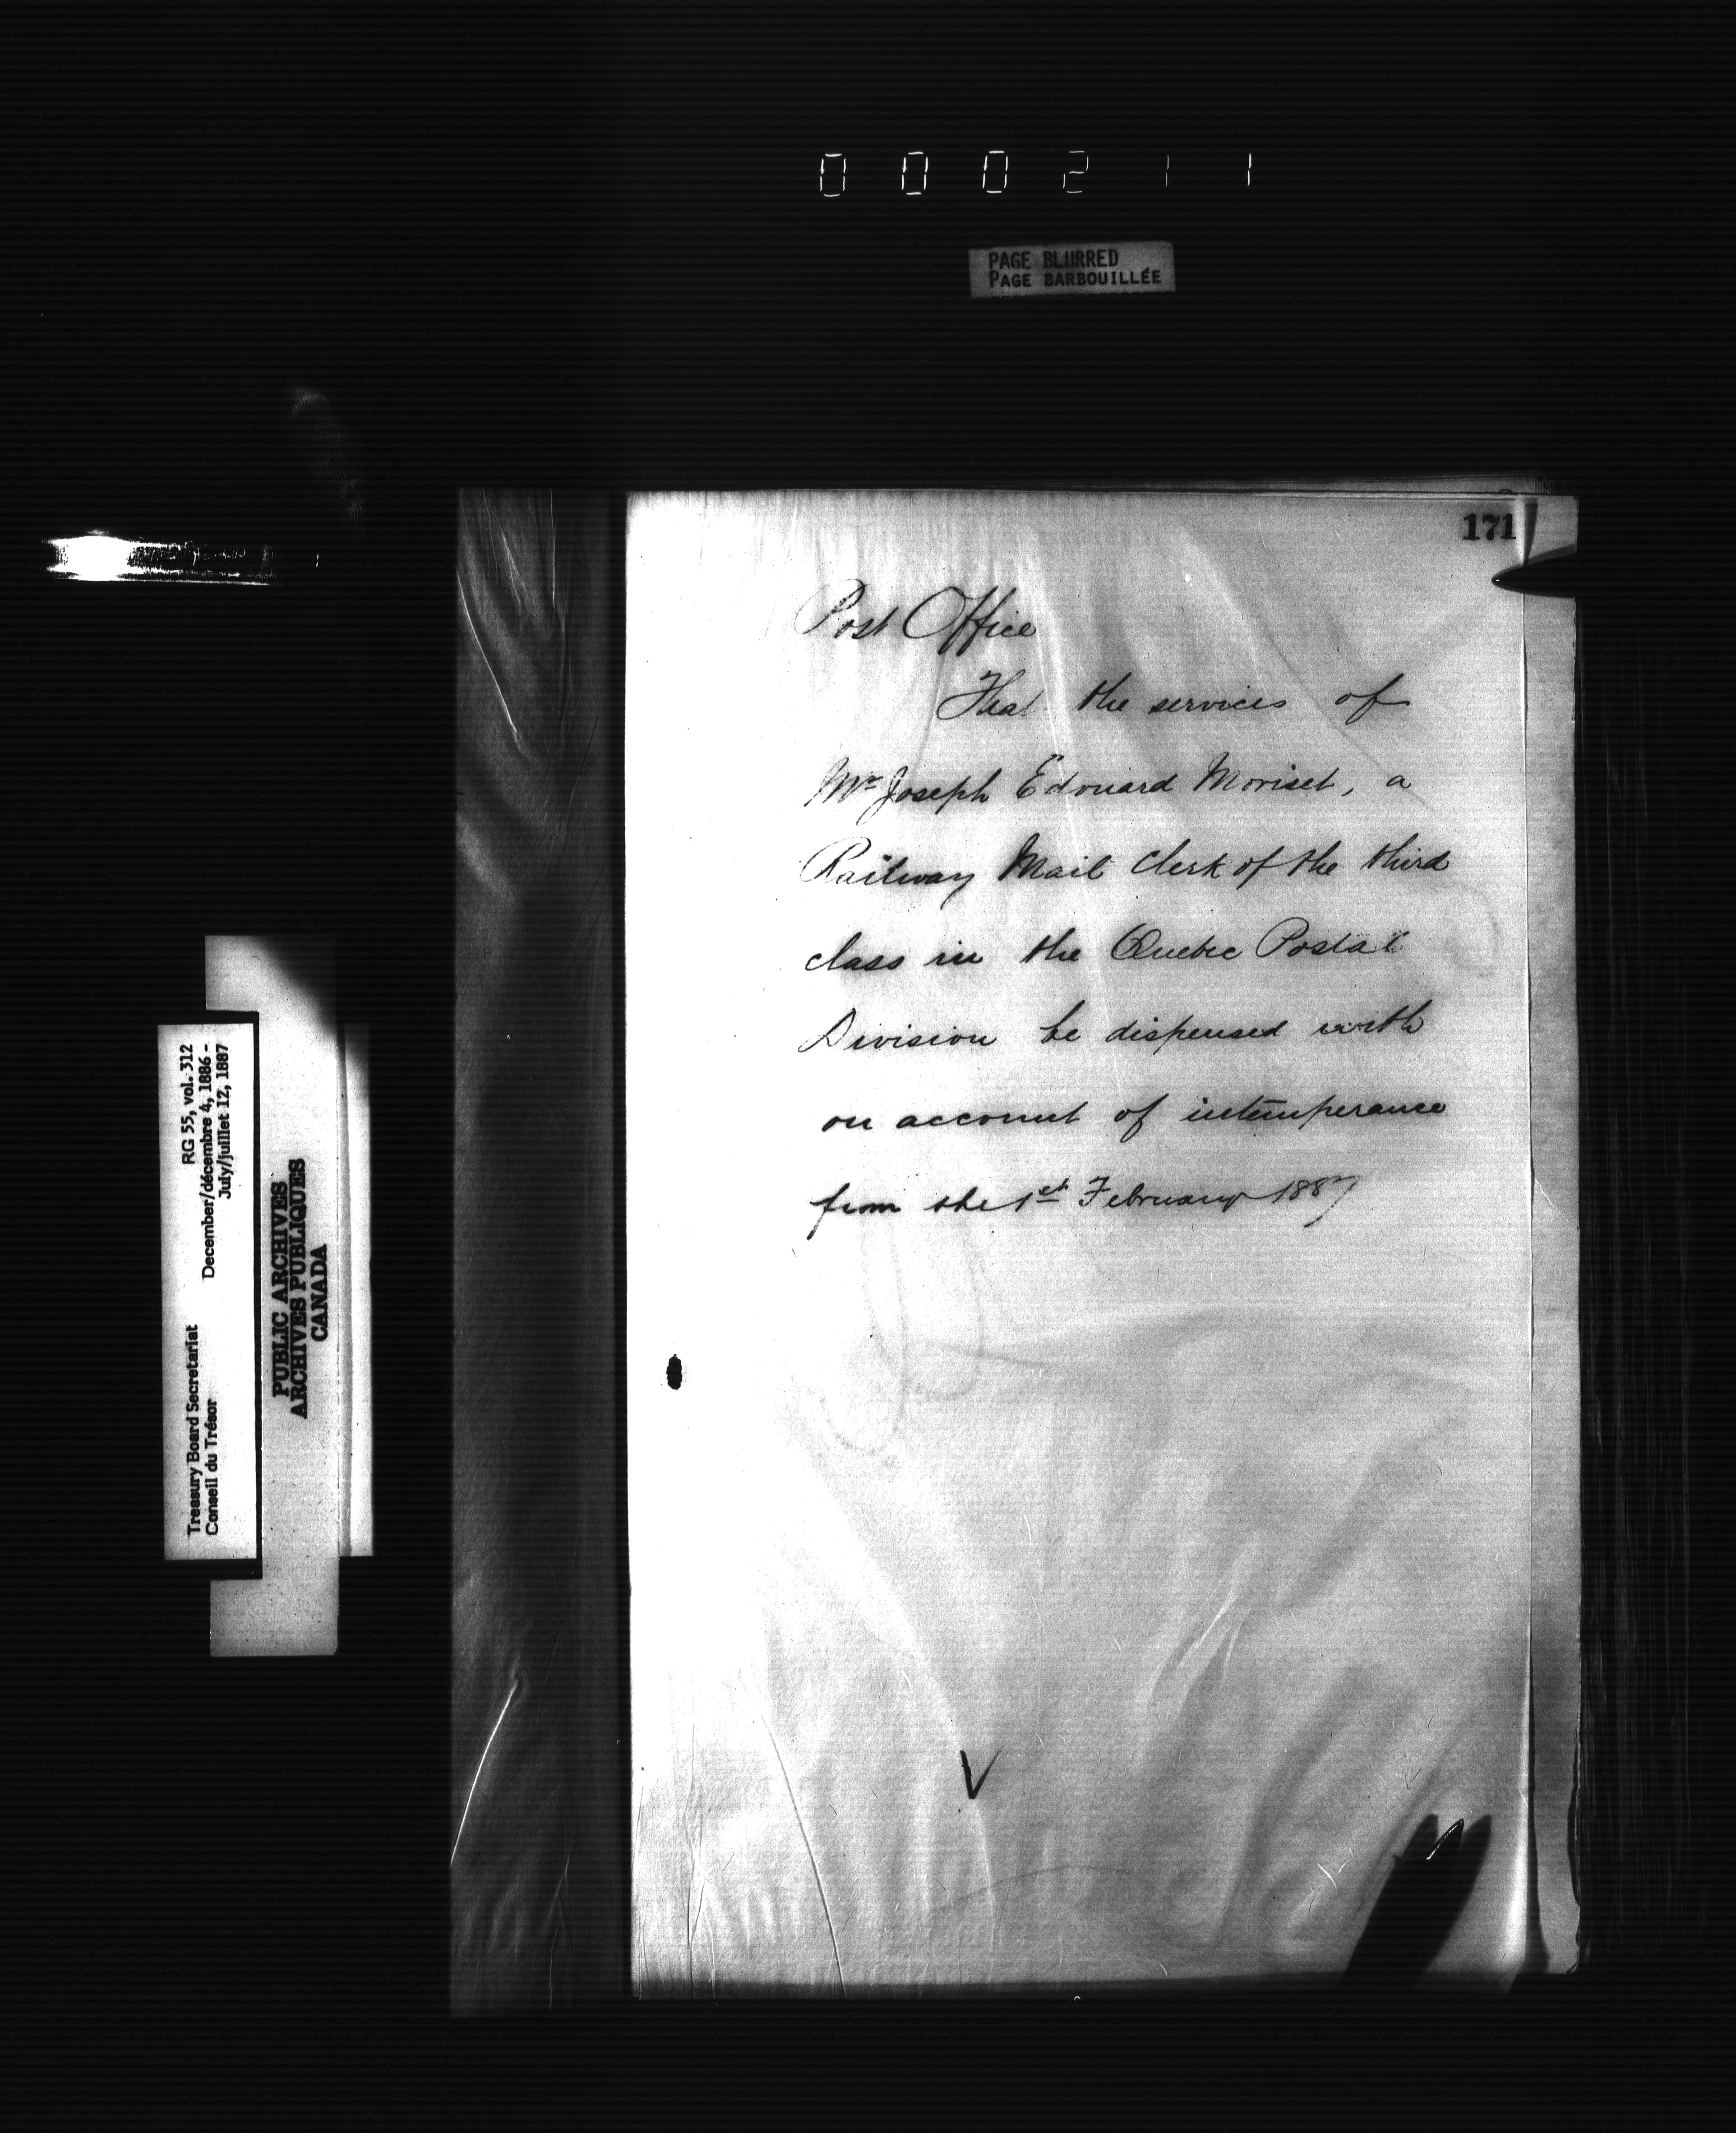 000211
PAGE BLURRED
PAGE BARBOUILLÉE
171
Post Office
That the services of
Mr Joseph Edouard Moriset, a
Railway Mail Clerk of the third
class in the Quebec Postal
Division be dispensed with
on account of intemperance
from the 1st February 1887
V
Treasury Board Secretariat RG 55, vol. 312
Conseil du Trésor December/décembre 4, 1886 -
July/juillet 12, 1887
PUBLIC ARCHIVES
ARCHIVES PUBLIQUES
CANADA